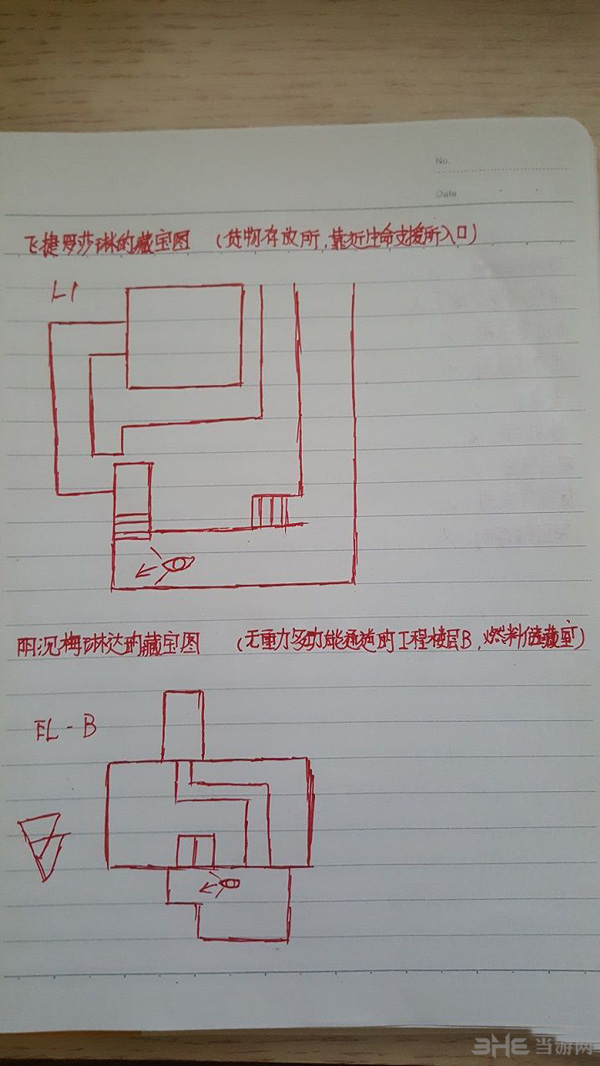 No.
Date
飞捷罗莎琳的藏宝图 (货物存放所,靠近生命支援所入口)
L1
阴沉梅琳达的藏宝图 (无重力多功能通道的工程楼层B,燃料储藏室)
EL-B
3HE 当游网